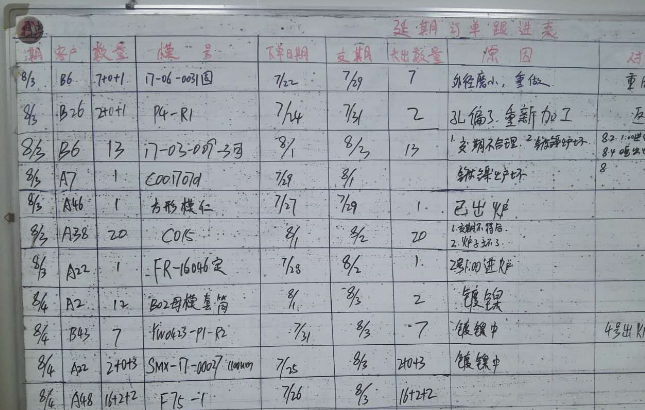 延期订单跟进表
期 客户 数量 模号 下单日期 交期 欠出数量 原因
8/3 B6 7+0+1 17-06-0031固 7/22 7/29 7 外径磨小,重做
8/3 B26 2+0+1 P4-R1 7/24 7/31 2 孔偏了.重新加工
8/3 B6 13 17-03-007-3固 8/1 8/2 13 1.交期不合理.2.
8/3 A7 1 C0017019 7/29 8/1
8/3 A46 1 方形模仁 7/27 7/29 1. 已出炉
8/3 A38 20 C015 8/1 8/2 20 1.交期不符合. 2.炉子坏了
8/3 A22 1 FR-16046定 7/28 8/2 1. 2号1:00进炉
8/4 A2 12 B02母模套筒 8/1 8/3 2 镀镍
8/4 B43 7 YW0423-P1-R2 7/31 8/3 7 镀镍中 4号出炉
8/4 A22 2+0+3 SMX-17-00027 7/25 8/3 2+0+3 镀镍中
8/4 A48 16+2+2 F75-1 7/26 8/3 16+2+2